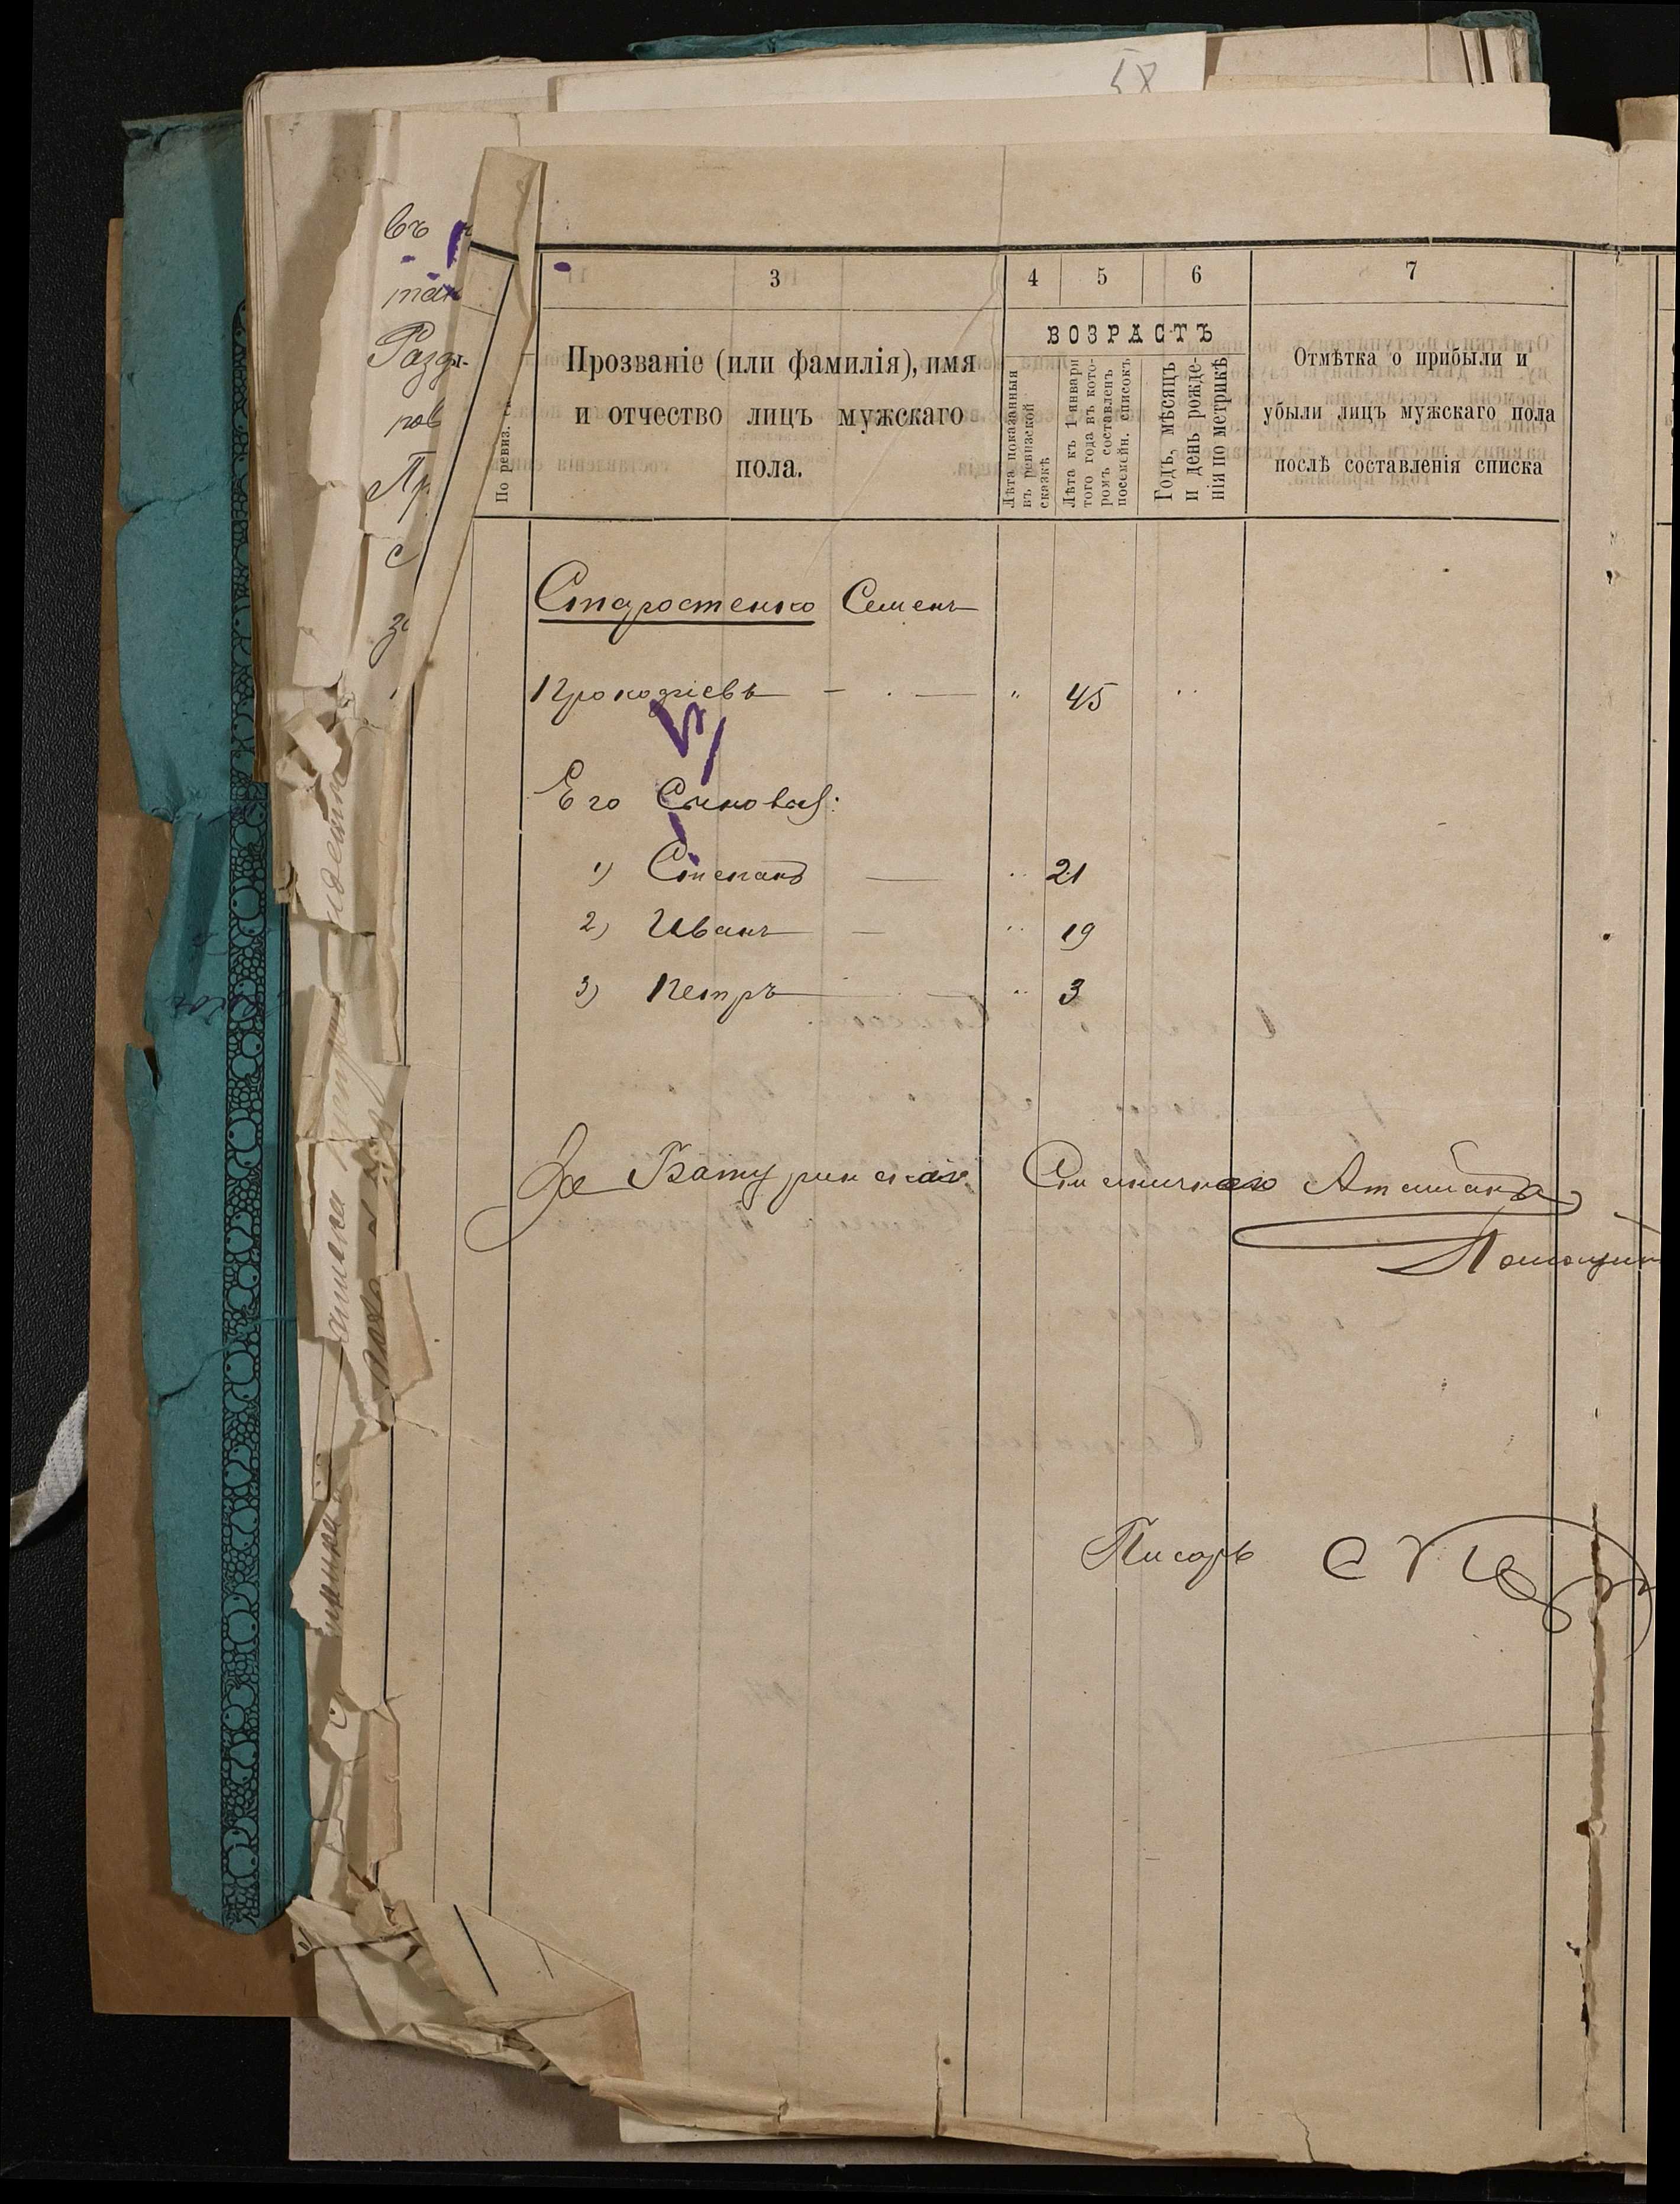 58
въ
так
Разды-
пов
Пр
с
По ревиз. с
3
4
5
6
7
Прозваніе (или фамилія), имя
и отчество лицъ мужскаго
пола.
ВОЗРАСТЪ
Лѣта показанныя
въ ревизской
сказкѣ
Лѣта къ 1 января
того года въ кото-
ромъ составленъ
посемейн. списокъ
Годъ, мѣсяцъ
и день рожде-
нія по метрикѣ
Отмѣтка о прибыли и
убыли лицъ мужскаго пола
послѣ составленія списка
Старостенко Семенъ
Прокофіевъ — . — " 45 "
Его Сыновья:
1) Степанъ — " 21
2) Иванъ — " 19
3) Петръ — " 3
За Батуринскаго Станичнаго Атамана
Помощник
Писарь